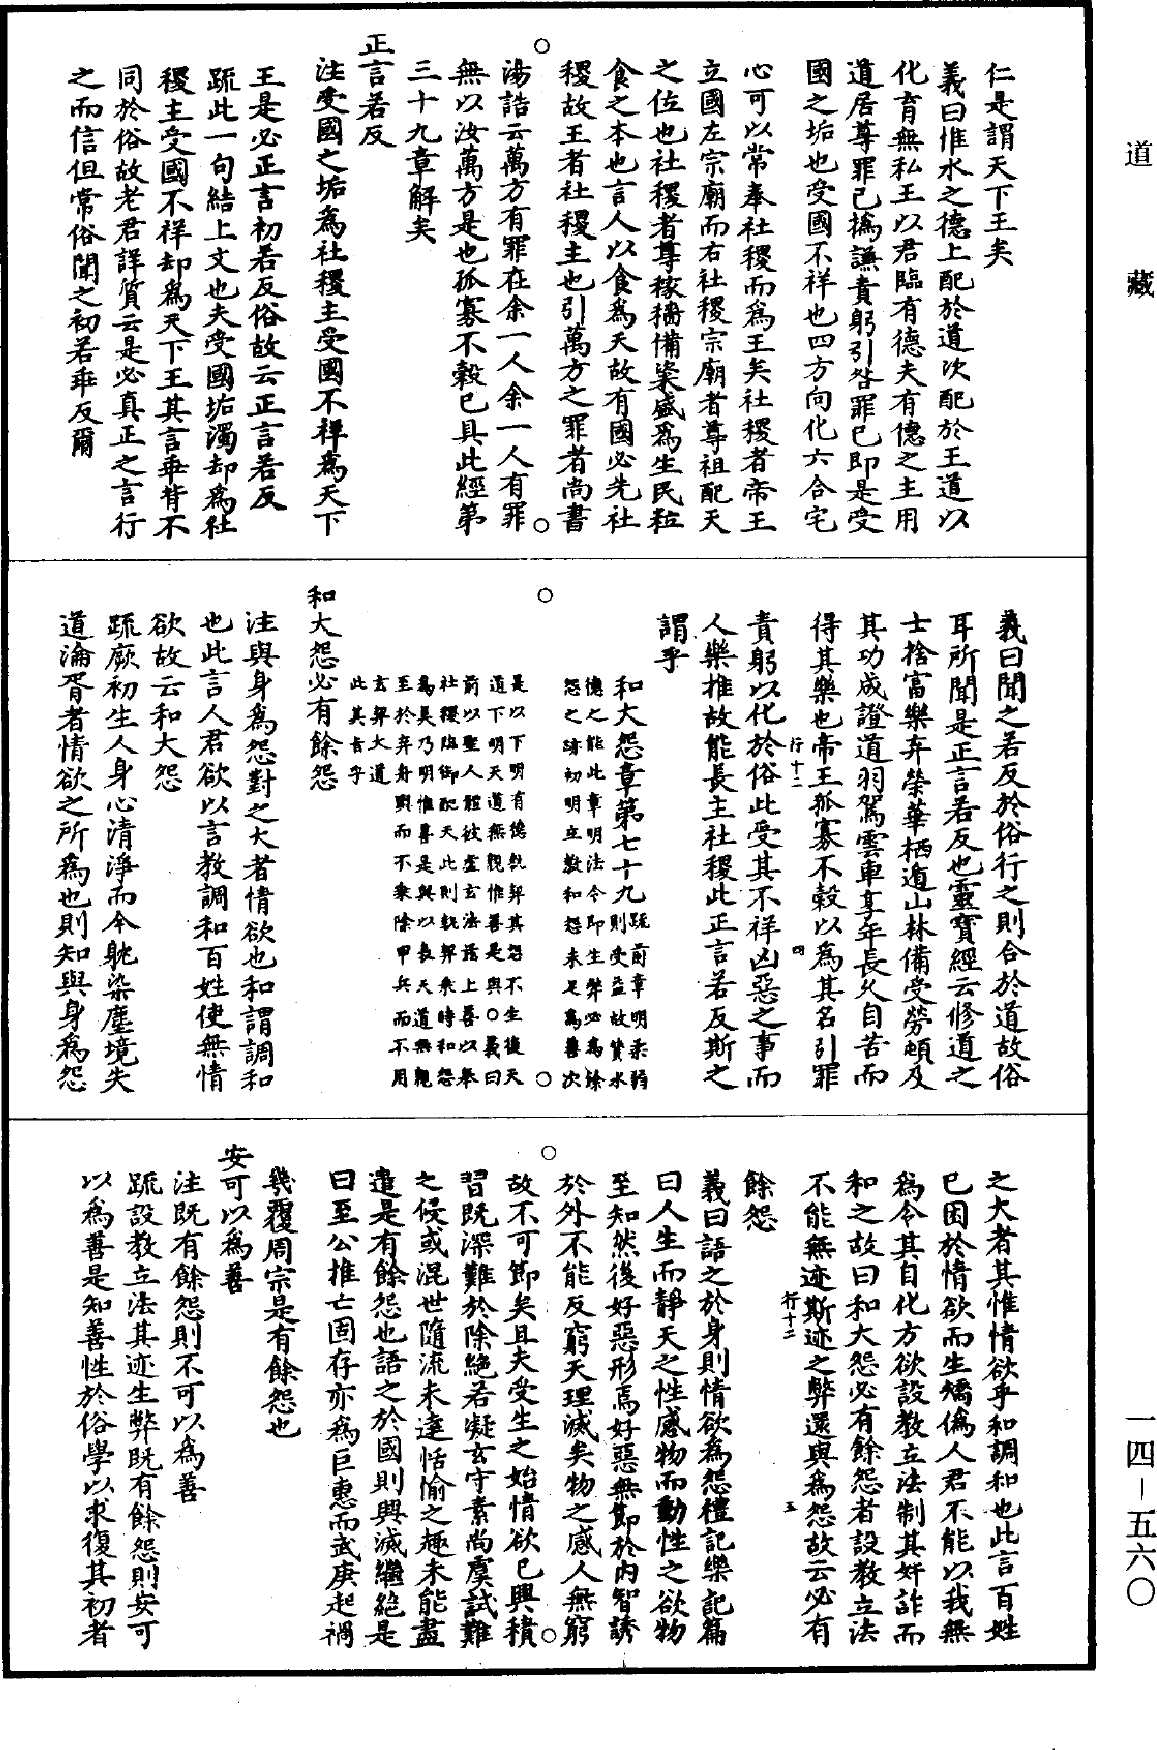 道藏
仁是謂天下王矣
義曰惟水之德上配於道次配於王道以
化育無私王以君臨有德夫有德之主用
道居尊罪己撝謙責躬引咎罪己即是受
國之垢也受國不祥也四方向化六合宅
心可以常奉社稷而爲王矣社稷者帝王
立國左宗廟而右社稷宗廟者尊祖配天
之位也社稷者尊稼穡備粢盛爲生民粒
食之本也言人以食爲天故有國必先社
稷故王者社稷主也引萬方之罪者尚書
湯誥云萬方有罪在余一人余一人有罪
無以汝萬方是也孤寡不穀已具此經第
三十九章解矣
正言若反
注受國之垢爲社稷主受國不祥爲天下
王是必正言初若反俗故云正言若反
疏此一句結上文也夫受國垢濁却爲社
稷主受國不祥却爲天下王其言乖背不
同於俗故老君詳質云是必真正之言行
之而信但常俗聞之初若乖反爾
義曰聞之若反於俗行之則合於道故俗
耳所聞是正言若反也靈寶經云修道之
士捨富樂弃榮華栖遁山林備受勞頓及
其功成證道羽駕雲車享年長久自苦而
得其樂也帝王孤寡不穀以爲其名引罪
行十二
四
責躬以化於俗此受其不祥凶惡之事而
人樂推故能長主社稷此正言若反斯之
謂乎
和大怨章第七十九疏前章明柔弱
則受益故贊水
德之能此章明法令即生弊必為餘
怨之跡初明立教和怨未足為善次
是以下明有德執契其怨不生後天
道下明天道無親惟善是與○義曰
前以聖人體彼虛玄法諸上善以奉
社稷臨御配天此則執契乘時和怨
爲義乃明惟善是與以表天道無親
至於弃舟輿而不乘除甲兵而不用
玄契大道
此其旨乎
和大怨必有餘怨
注與身爲怨對之大者情欲也和謂調和
也此言人君欲以言教調和百姓使無情
欲故云和大怨
疏厥初生人身心清淨而今躭染塵境失
道淪胥者情欲之所爲也則知與身爲怨
之大者其惟情欲乎和調和也此言百姓
已困於情欲而生矯偽人君不能以我無
爲令其自化方欲設教立法制其奸詐而
和之故曰和大怨必有餘怨者設教立法
不能無迹斯迹之弊還與爲怨故云必有
行十二
五
餘怨
義曰語之於身則情欲爲怨禮記樂記篇
曰人生而靜天之性感物而動性之欲物
至知然後好惡形焉好惡無節於內智誘
於外不能反窮天理滅矣物之感人無窮
故不可節矣且夫受生之始情欲已興積
習既深難於除絕若凝玄守素尚虞試難
之侵或混世隨流未達恬愉之趣未能盡
遣是有餘怨也語之於國則興滅繼絕是
曰至公推亡固存亦爲巨惠而武庚起禍
幾覆周宗是有餘怨也
安可以爲善
注既有餘怨則不可以爲善
疏設教立法其迹生弊既有餘怨則安可
以爲善是知善性於俗學以求復其初者
一四－五六〇